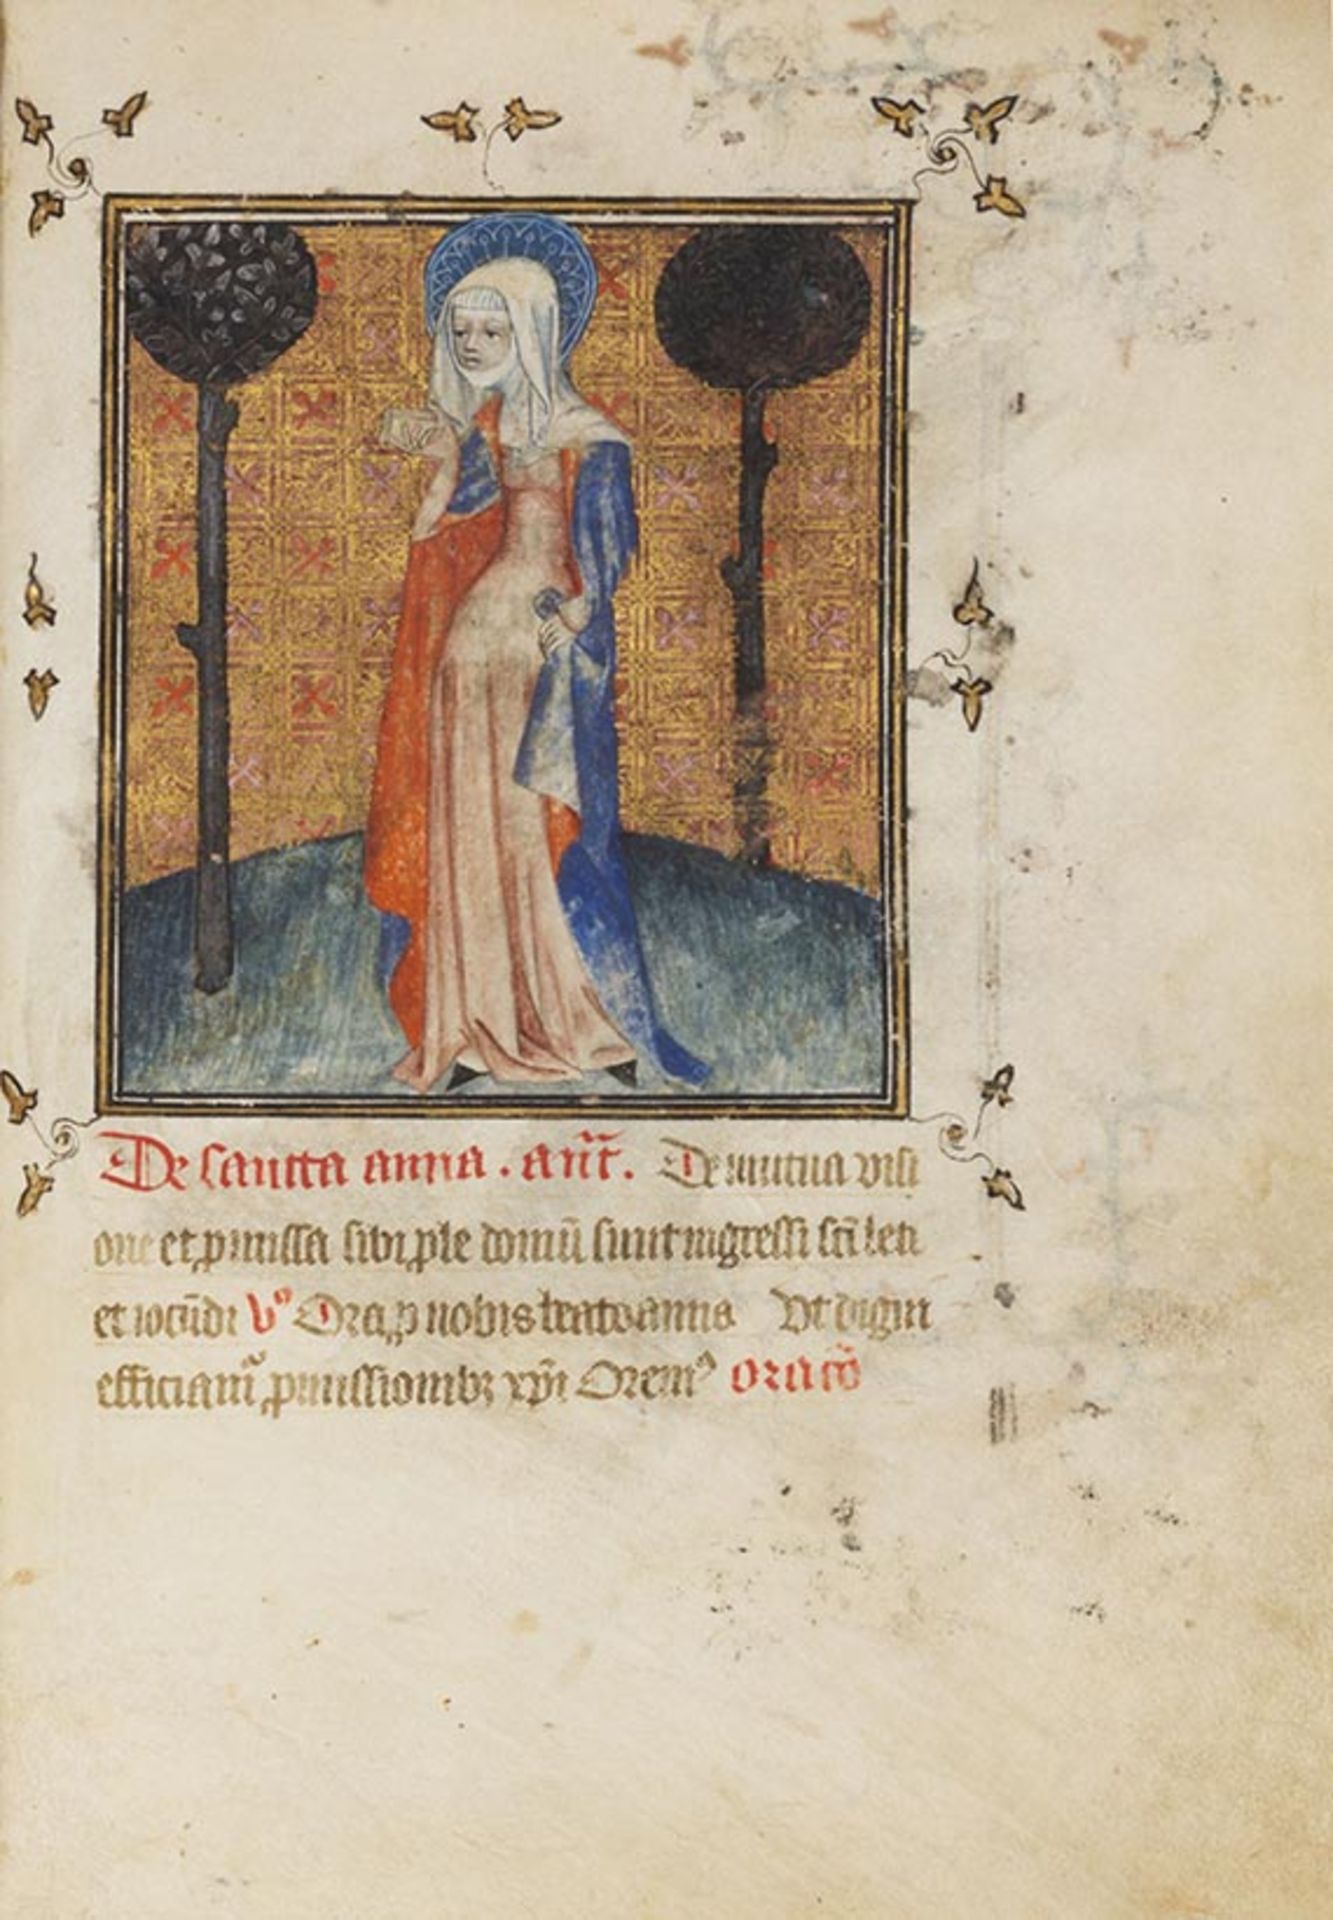 De sancta anna . añt. De mutua visi
one et ꝓmissa sibi ꝓle domū sunt ingressi sc̄i leti
et iocūdi v̾ Ora ꝓ nobis beata anna Ut digni
efficiam̄ ꝓmissionibꝫ xp̄i Orem⁹ oracō